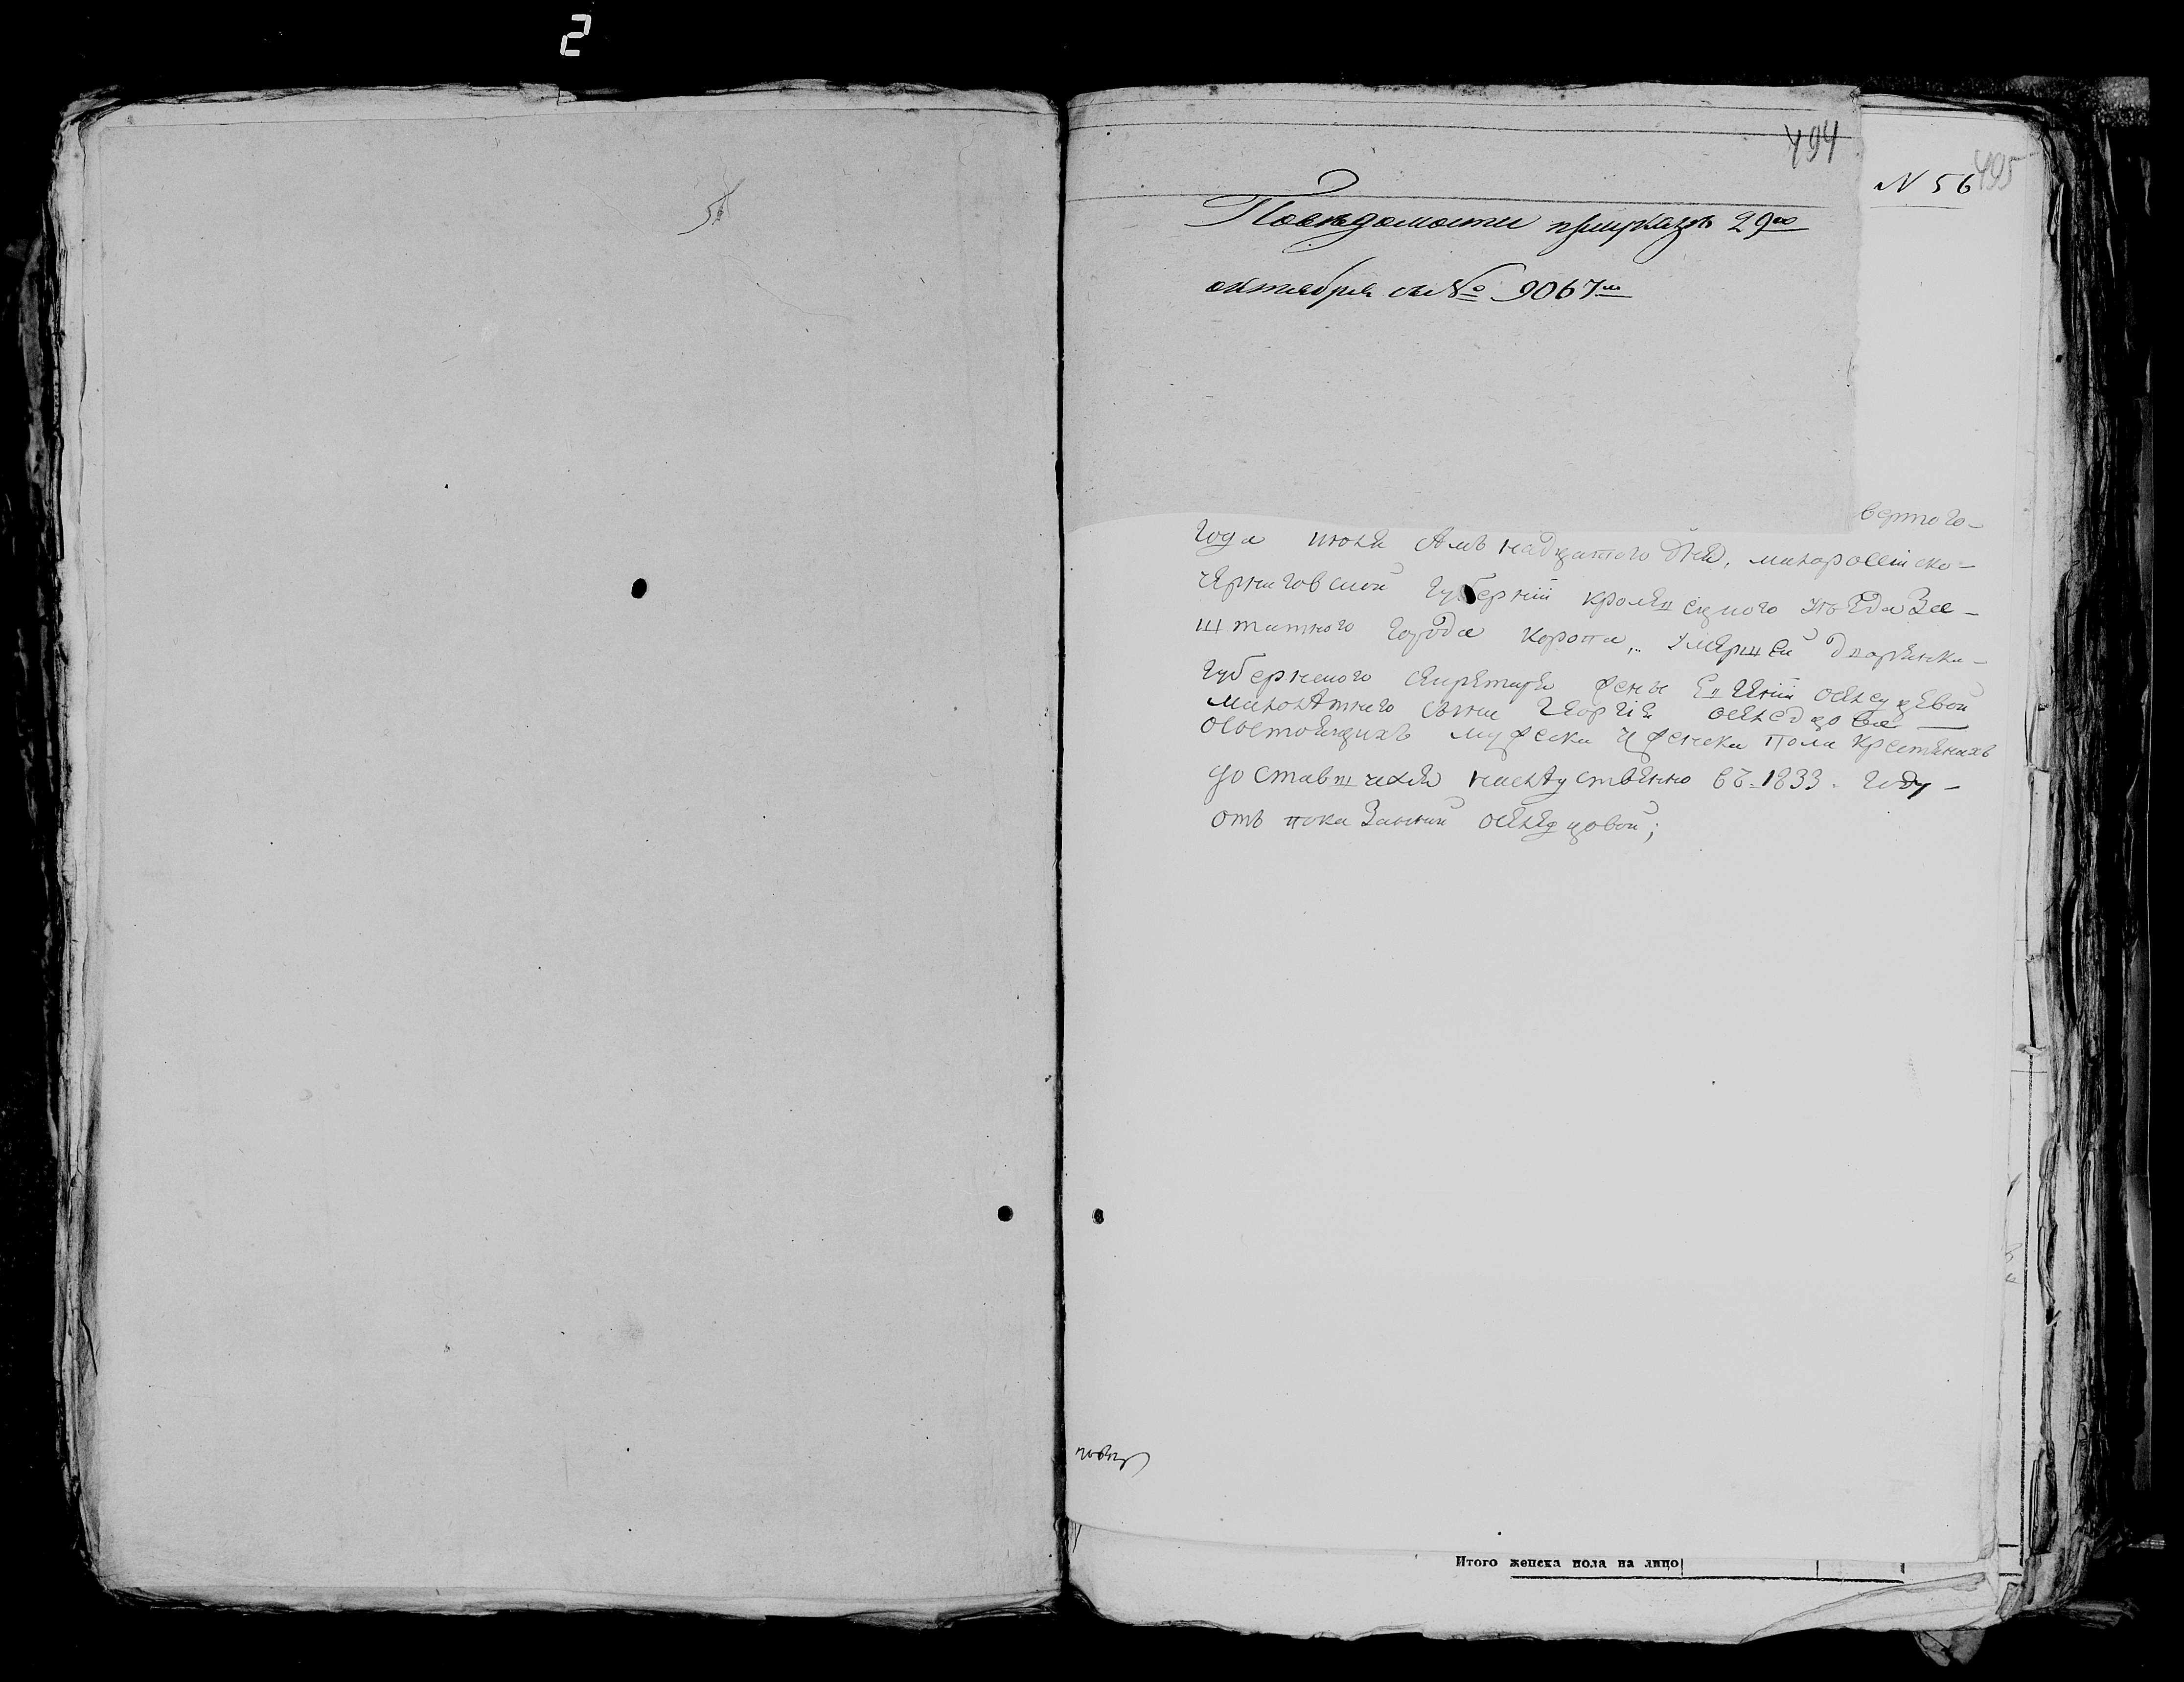 2
494
495
N 56
Поведомости приуказе 29го
октября съ № 9067м
вертого-
года июля надцатого дня, малоросийско-
черниговской губернии кролевецкого уезда За-
штатного города Коропа, умершей дворянки-
губернского секретаря жены Евгении оселедцевой
малолетнего сына Георгия оселедцова
осостоящихъ мужеска и женска пола крестянахъ
доставшихся наследственно въ 1833. году-
отъ показанной оселедцовой;
Итого женска пола на лицо